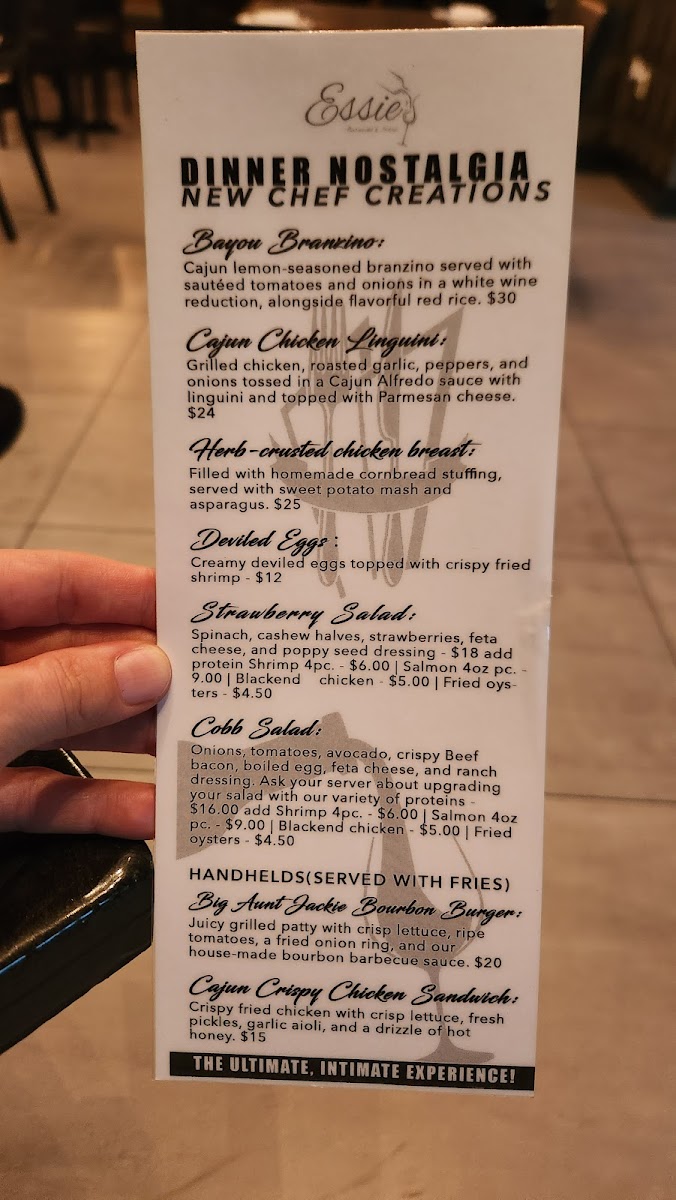 Essie's
DINNER NOSTALGIA
NEW CHEF CREATIONS
Bayou Branzino:
Cajun lemon-seasoned branzino served with
sautéed tomatoes and onions in a white wine
reduction, alongside flavorful red rice. $30
Cajun Chicken Linguini:
Grilled chicken, roasted garlic, peppers, and
onions tossed in a Cajun Alfredo sauce with
linguini and topped with Parmesan cheese.
$24
Herb-crusted chicken breast:
Filled with homemade cornbread stuffing,
served with sweet potato mash and
asparagus. $25
Deviled Eggs :
Creamy deviled eggs topped with crispy fried
shrimp - $12
Strawberry Salad:
Spinach, cashew halves, strawberries, feta
cheese, and poppy seed dressing - $18 add
protein Shrimp 4pc. - $6.00 | Salmon 4oz pc. -
9.00 | Blackend chicken - $5.00 | Fried oys-
ters - $4.50
Cobb Salad:
Onions, tomatoes, avocado, crispy Beef
bacon, boiled egg, feta cheese, and ranch
dressing. Ask your server about upgrading
your salad with our variety of proteins -
$16.00 add Shrimp 4pc. - $6.00 | Salmon 4oz
pc. - $9.00 | Blackend chicken - $5.00 | Fried
oysters - $4.50
HANDHELDS(SERVED WITH FRIES)
Big Aunt Jackie Bourbon Burger:
Juicy grilled patty with crisp lettuce, ripe
tomatoes, a fried onion ring, and our
house-made bourbon barbecue sauce. $20
Cajun Crispy Chicken Sandwich:
Crispy fried chicken with crisp lettuce, fresh
pickles, garlic aioli, and a drizzle of hot
honey. $15
THE ULTIMATE, INTIMATE EXPERIENCE!